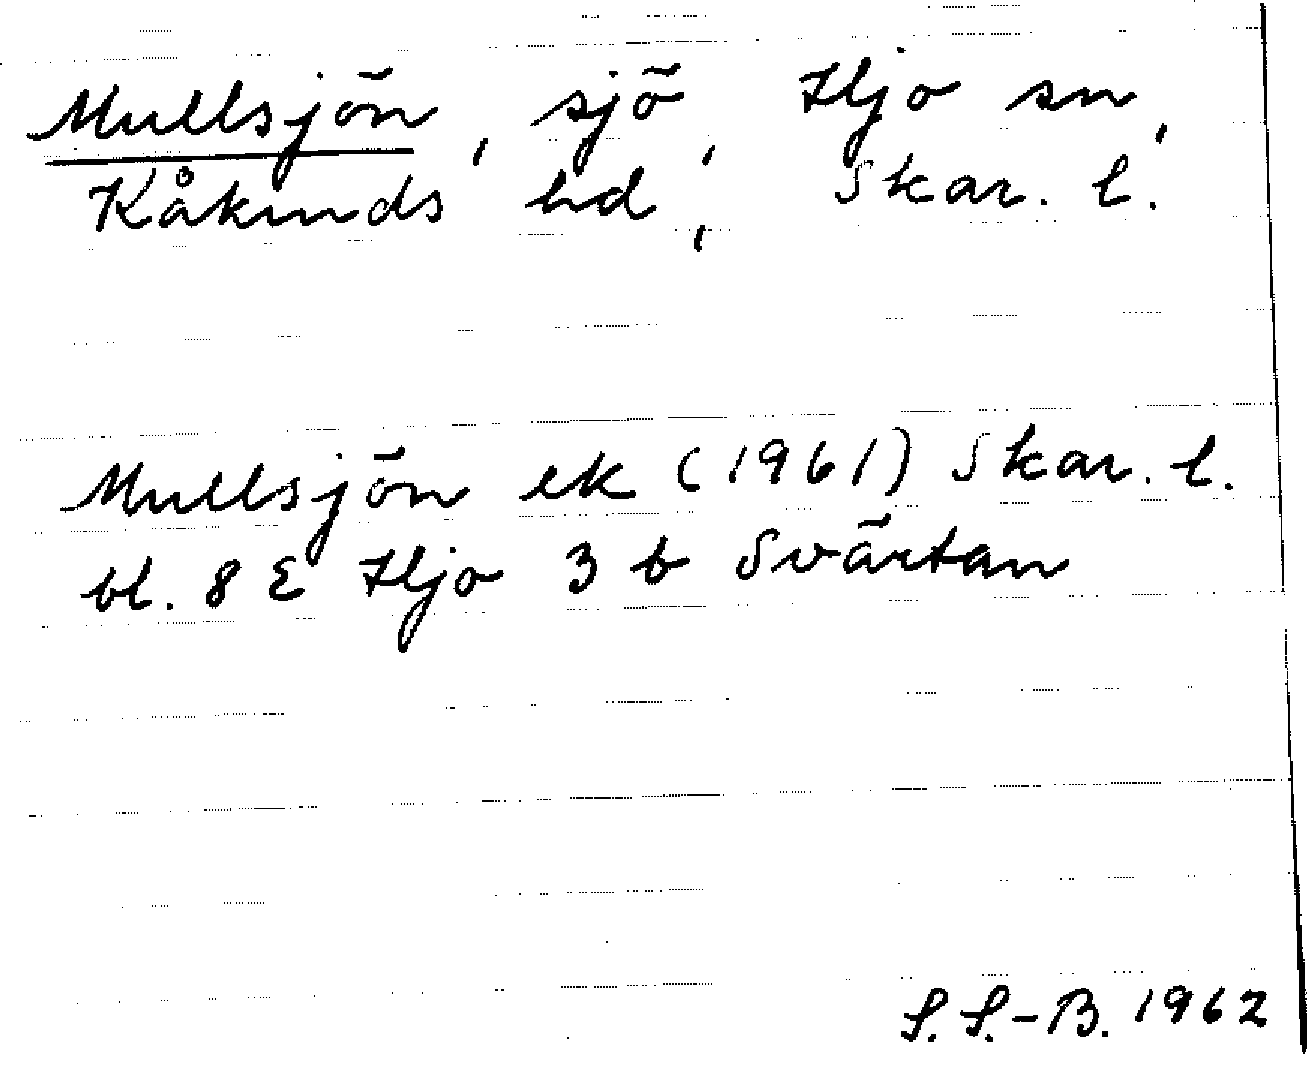 Mullsjön, sjö, Hjo sn,
Kåkinds hd, Skar. l.
Mullsjön ek (1961) Skar. l.
bl. 8 E Hjo 3 b Svärtan
S. S.-B. 1962